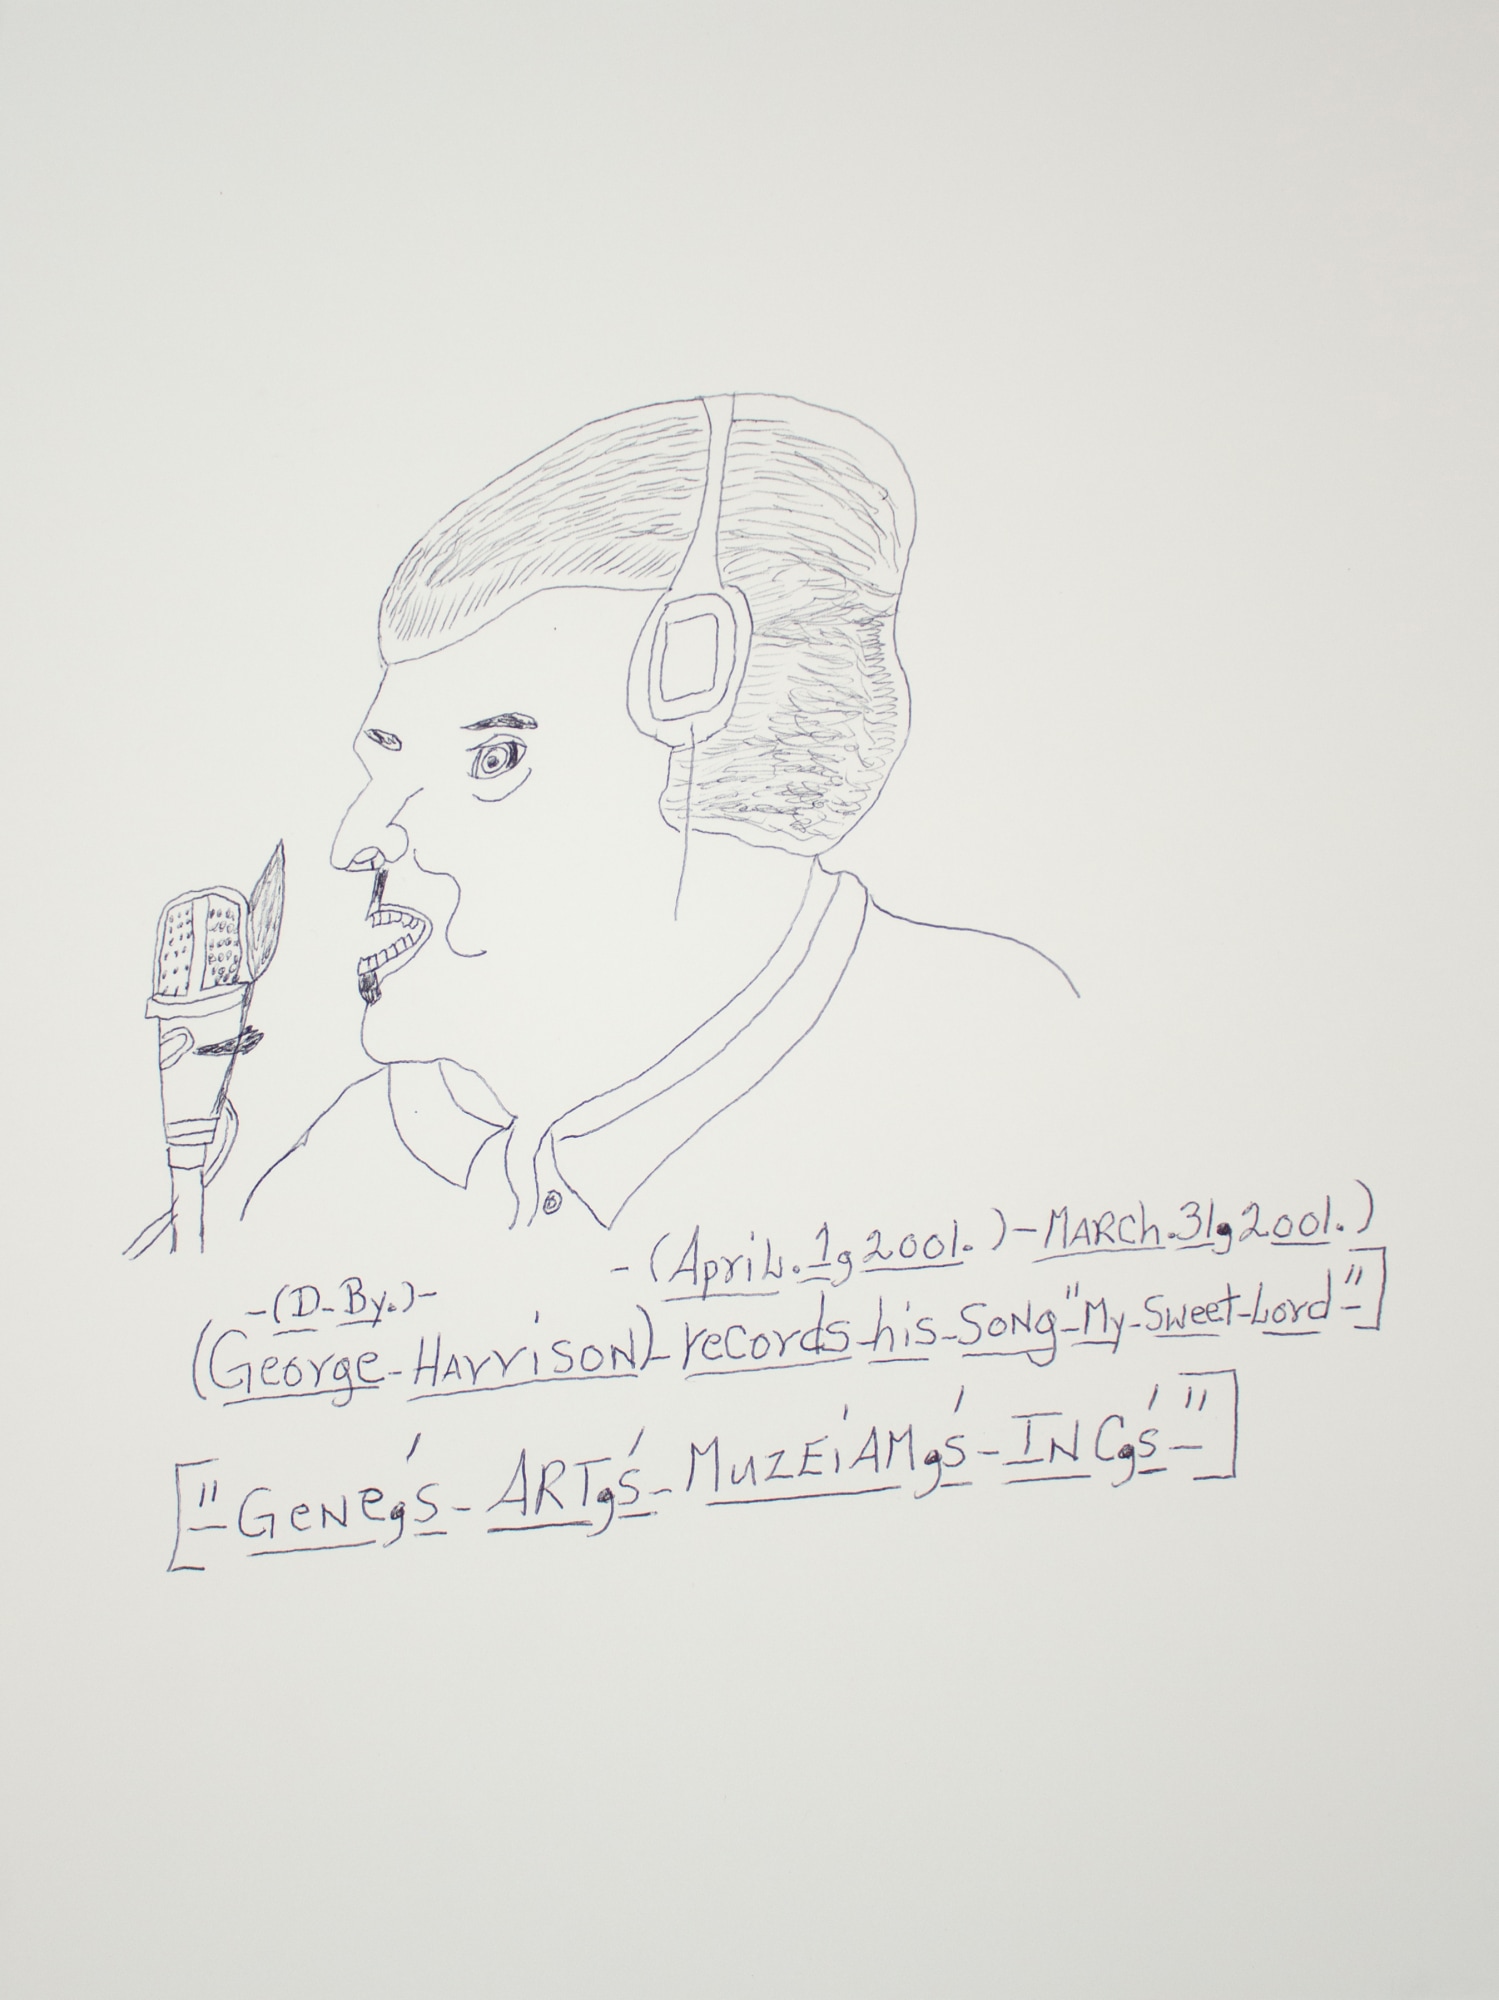 -(April. 1, 2001.)-MARCh. 31, 2001.)
-(D-By.)-
(George-HArriSON)-records-his-SoNg-"My-Sweet-Lord"-]
["-GeNe,'s-ART,'s-MuZEiAM,'s-INC,'s-"]